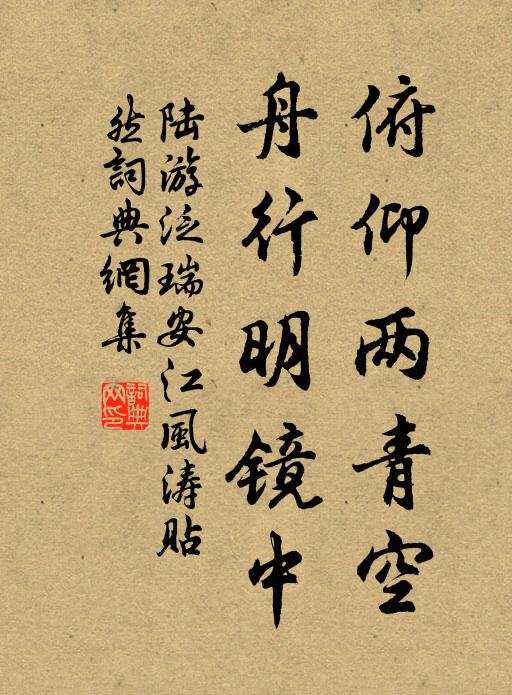 俯仰两青空
舟行明镜中
陆游泛瑞安江风涛贴
然词典網集
詞典
网印